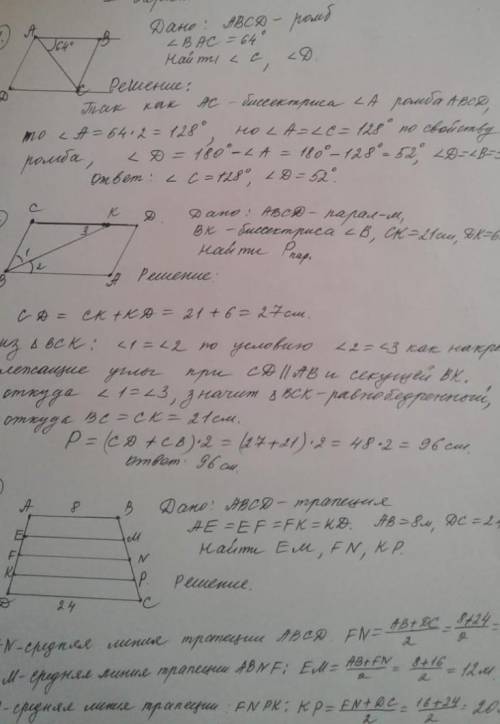 1.
A B Дано: ABCD - ромб
64° ∠BAC = 64°
Найти ∠C, ∠D.
D C Решение:
Так как AC - биссектриса ∠A ромба ABCD,
то ∠A = 64·2 = 128°, но ∠A = ∠C = 128° по свойству
ромба, ∠D = 180° - ∠A = 180° - 128° = 52°, ∠D = ∠B =
Ответ: ∠C = 128°, ∠D = 52°.
C K D. Дано: ABCD - парал-м,
3 BK - биссектриса ∠B, CK = 21см, DK = 6
1 2 Найти Pпар.
B A Решение:
CD = CK + KD = 21 + 6 = 27см.
из △BCK: ∠1 = ∠2 по условию ∠2 = ∠3 как накр
лежащие углы при CD || AB и секущей BK.
откуда ∠1 = ∠3, значит △BCK - равнобедренный,
откуда BC = CK = 21см.
P = (CD + CB)·2 = (27 + 21)·2 = 48·2 = 96 см.
ответ: 96 см.
A 8 B Дано: ABCD - трапеция
E M AE = EF = FK = KD. AB = 8м, DC = 2
F N Найти EM, FN, KP.
K P Решение.
D 24 C
N - средняя линия трапеции ABCD FN = AB + DC / 2 = 8 + 24 / 2 =
M - средняя линия трапеции ABNF; EM = AB + FN / 2 = 8 + 16 / 2 = 12м.
- средняя линия трапеции FNPK; KP = FN + DC / 2 = 16 + 24 / 2 = 20